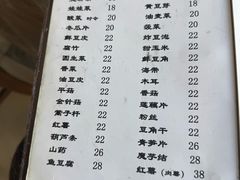 娃娃菜 18
酸菜 时令 20
冬瓜片 20
鲜豆皮 22
腐竹 22
圆生菜 22
香菜 22
油豆皮 22
平菇 22
金针菇 22
蒿子杆 22
红薯 22
葫芦条 22
山药 26
鱼豆腐 28
黄豆芽 18
油麦菜 20
菠菜 20
炸豆泡 22
甜玉米 22
鲜豆苗 22
海带 22
木耳 22
香菇 22
莲藕片 22
粉丝 22
豆角干 22
青笋片 26
魔芋结 28
红薯 38